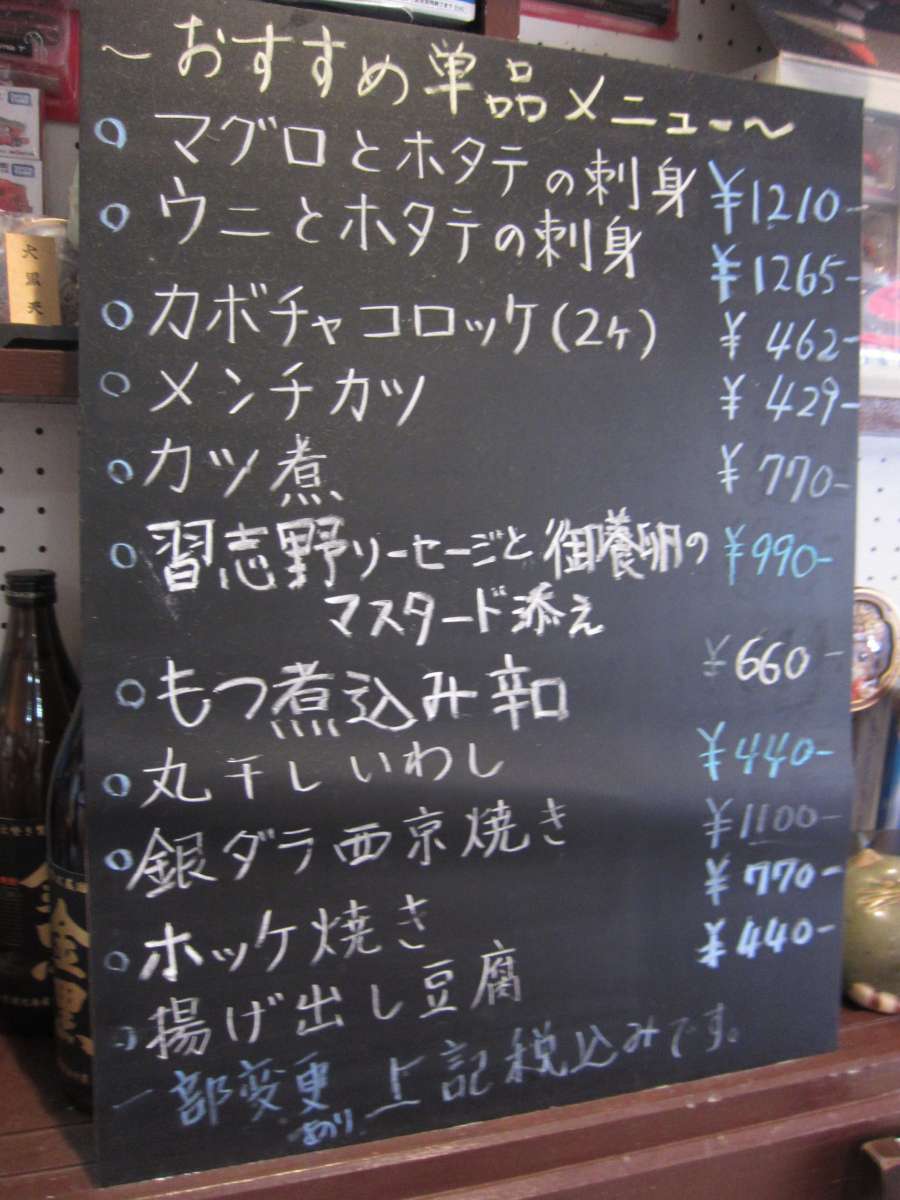 ～おすすめ単品メニュー～
マグロとホタテの刺身 ¥1210-
ウニとホタテの刺身 ¥1265-
カボチャコロッケ(2ヶ) ¥462-
メンチカツ ¥429-
カツ煮 ¥770-
習志野ソーセージと御養卵の ¥990-
マスタード添え
もつ煮込み辛口 ¥660-
丸干しいわし ¥440-
銀ダラ西京焼き ¥1100-
ホッケ焼き ¥770-
揚げ出し豆腐 ¥440-
一部変更あり 上記税込みです。
大黒天
金黒